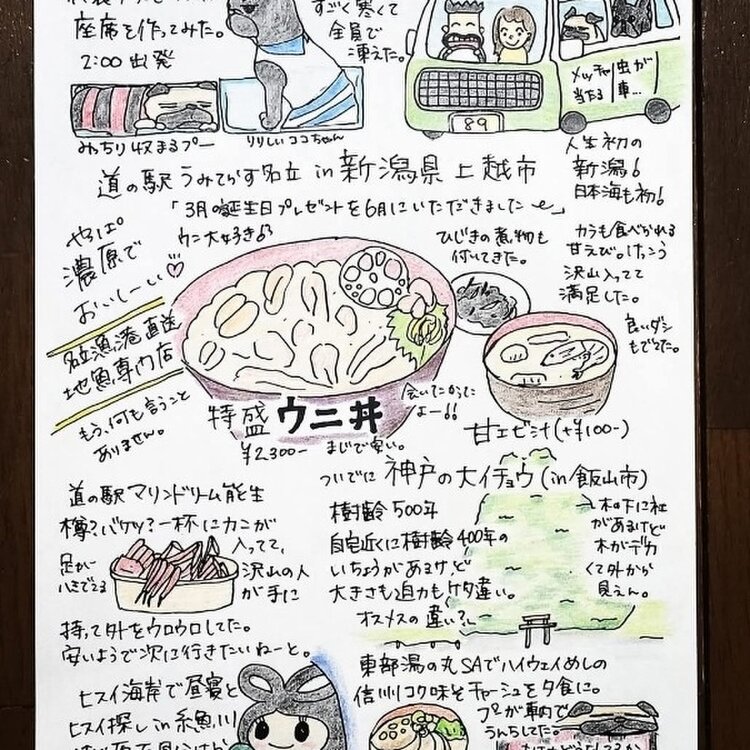 座席を作ってみた。
2:00 出発
すごく寒くて
全員で
凍えた。
メッチャ虫が
当たる車…
89
みっちり収まるプー
りりしいココちゃん
道の駅 うみてらす名立 in 新潟県 上越市
「3月誕生日プレゼントを6月にいただきました」
人生初の
新潟!
日本海も初!
やっぱ
濃厚で
おいしーい♡
ウニ大好き
ひじきの煮物も
付いてきた。
カラも食べられる
甘えび。けっこう
沢山入ってて
満足した。
良いダシ
もでてた。
名立漁港直送
地魚専門店
もう、何も言うこと
ありません。
特盛 ウニ丼
¥2,300- まじで安い。
会いたかった
よー!!
甘エビ汁(+¥100-)
道の駅マリンドリーム能生
樽?バケツ?一杯にカニが
入ってて、
沢山の人
が手に
足が
はみでてる
持って外をウロウロしてた。
安いようで次に行きたいねーと。
ついでに 神戸の大イチョウ (in 飯山市)
樹齢500年
自宅近くに樹齢400年の
いちょうがあるけど
大きさも迫力もケタ違い。
オスメスの違い?
木の下に社
があるけど
木がデカ
くて外から
見えん。
ヒスイ海岸で昼寝と
ヒスイ探し in 糸魚川
東部湯の丸SAでハイウェイめしの
信州コク味噌チャーシューを夕食に。
プーが車内で
うんちしてた。